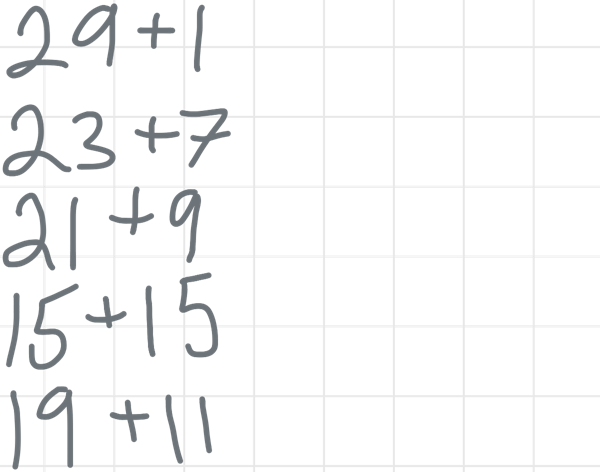 29+1
23+7
21+9
15+15
19+11